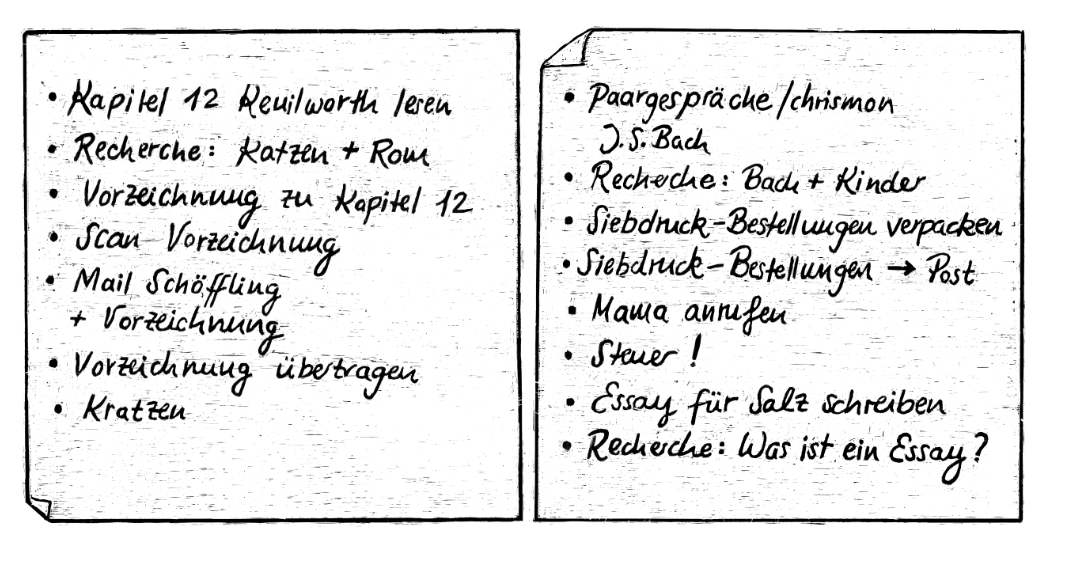 • Kapitel 12 Kenilworth lesen
• Recherche: Katzen + Rom
• Vorzeichnung zu Kapitel 12
• Scan Vorzeichnung
• Mail Schöffling
+ Vorzeichnung
• Vorzeichnung übertragen
• Kratzen
• Paargespräche/chrismon
J.S.Bach
• Recherche: Bach + Kinder
• Siebdruck-Bestellungen verpacken
• Siebdruck-Bestellungen → Post
• Mama anrufen
• Steuer!
• Essay für Salz schreiben
• Recherche: Was ist ein Essay?